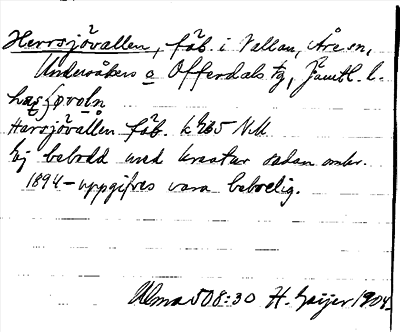 Herrsjövallen, fäb. i Vallan, Åre sn,
Undersåkers o Offerdals tg, Jämtl. l.
Harsjövallen fäb. k. 265 NM
Ej bebodd med kreatur sedan omkr.
1894 – uppgifves vara beboelig.
Ulma 508:30 H. Geijer 1904.